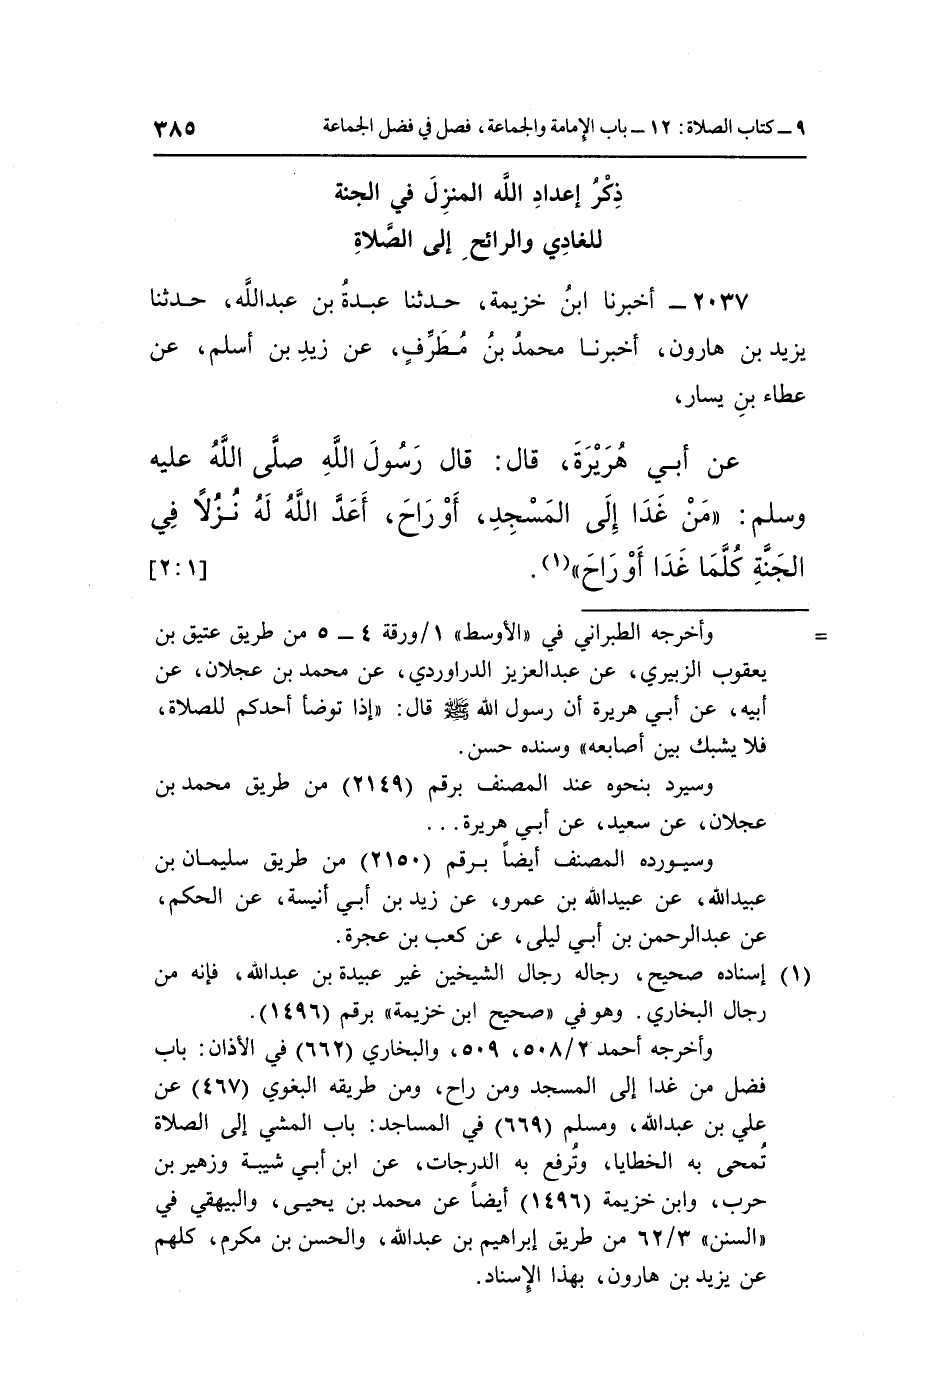 ٩ ـ كتاب الصلاة: ١٢ ـ باب الإمامة والجماعة، فصل في فضل الجماعة ٣٨٥
ذِكْرُ إعدادِ اللَّه المنزِلَ في الجنة
للغادِي والرائحِ إلى الصَّلاةِ
٢٠٣٧ ـ أخبرنا ابنُ خزيمة، حدثنا عبدةُ بن عبداللَّه، حدثنا
يزيد بن هارون، أخبرنا محمدُ بنُ مُطَرِّفٍ، عن زيدِ بن أسلم، عن
عطاء بنِ يسار،
عن أبي هُرَيْرَةَ، قال: قال رَسُولَ اللَّهِ صلَّى اللَّهُ عليه
وسلم: «مَنْ غَدَا إِلَى المَسْجِدِ، أَوْ رَاحَ، أَعَدَّ اللَّهُ لَهُ نُزُلاً فِي
الجَنَّةِ كُلَّمَا غَدَا أَوْ رَاحَ»(١). [٢:١]
= وأخرجه الطبراني في «الأوسط» ١/ورقة ٤ ـ ٥ من طريق عتيق بن
يعقوب الزبيري، عن عبدالعزيز الدراوردي، عن محمد بن عجلان، عن
أبيه، عن أبي هريرة أن رسول الله ﷺ قال: «إذا توضأ أحدكم للصلاة،
فلا يشبك بين أصابعه» وسنده حسن.
وسيرد بنحوه عند المصنف برقم (٢١٤٩) من طريق محمد بن
عجلان، عن سعيد، عن أبي هريرة...
وسيورده المصنف أيضاً برقم (٢١٥٠) من طريق سليمان بن
عبيدالله، عن عبيدالله بن عمرو، عن زيد بن أبي أنيسة، عن الحكم،
عن عبدالرحمن بن أبي ليلى، عن كعب بن عجرة.
(١) إسناده صحيح، رجاله رجال الشيخين غير عبيدة بن عبدالله، فإنه من
رجال البخاري. وهو في «صحيح ابن خزيمة» برقم (١٤٩٦).
وأخرجه أحمد ٥٠٨/٢، ٥٠٩، والبخاري (٦٦٢) في الأذان: باب
فضل من غدا إلى المسجد ومن راح، ومن طريقه البغوي (٤٦٧) عن
علي بن عبدالله، ومسلم (٦٦٩) في المساجد: باب المشي إلى الصلاة
تُمحى به الخطايا، وتُرفع به الدرجات، عن ابن أبي شيبة وزهير بن
حرب، وابن خزيمة (١٤٩٦) أيضاً عن محمد بن يحيى، والبيهقي في
«السنن» ٦٢/٣ من طريق إبراهيم بن عبدالله، والحسن بن مكرم، كلهم
عن يزيد بن هارون، بهذا الإسناد.